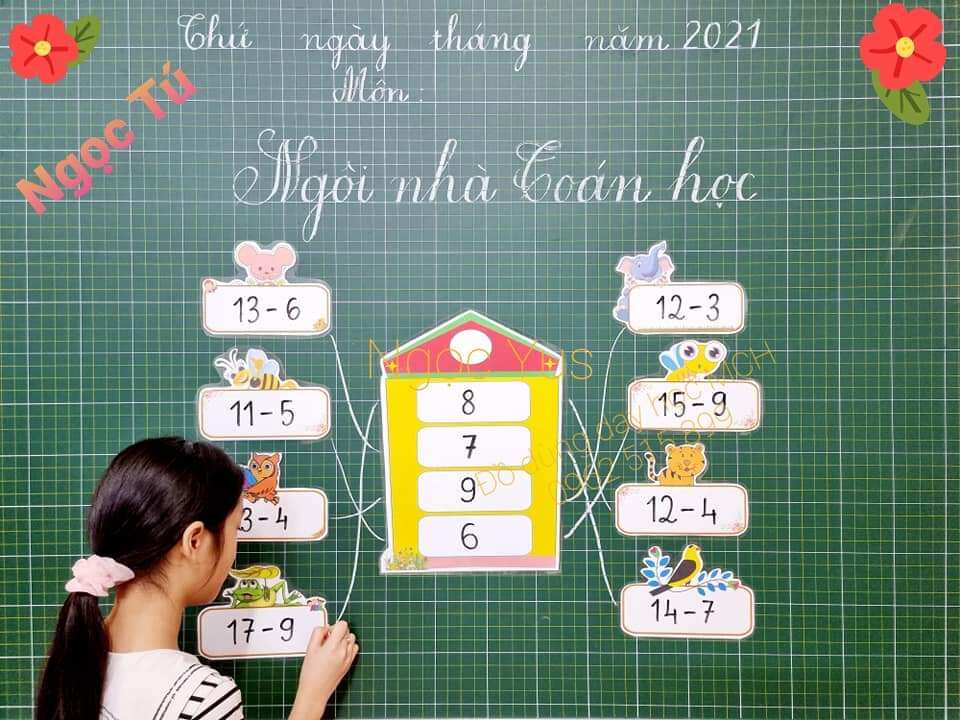 Thứ ngày tháng năm 2021
Môn :
Ngọc Tú
Ngôi nhà Toán học
13 - 6
12 - 3
Ngọc Yus
11 - 5
8
15 - 9
7
Đồ dùng dạy học MCH
3 - 4
9
12 - 4
6
17 - 9
14 - 7